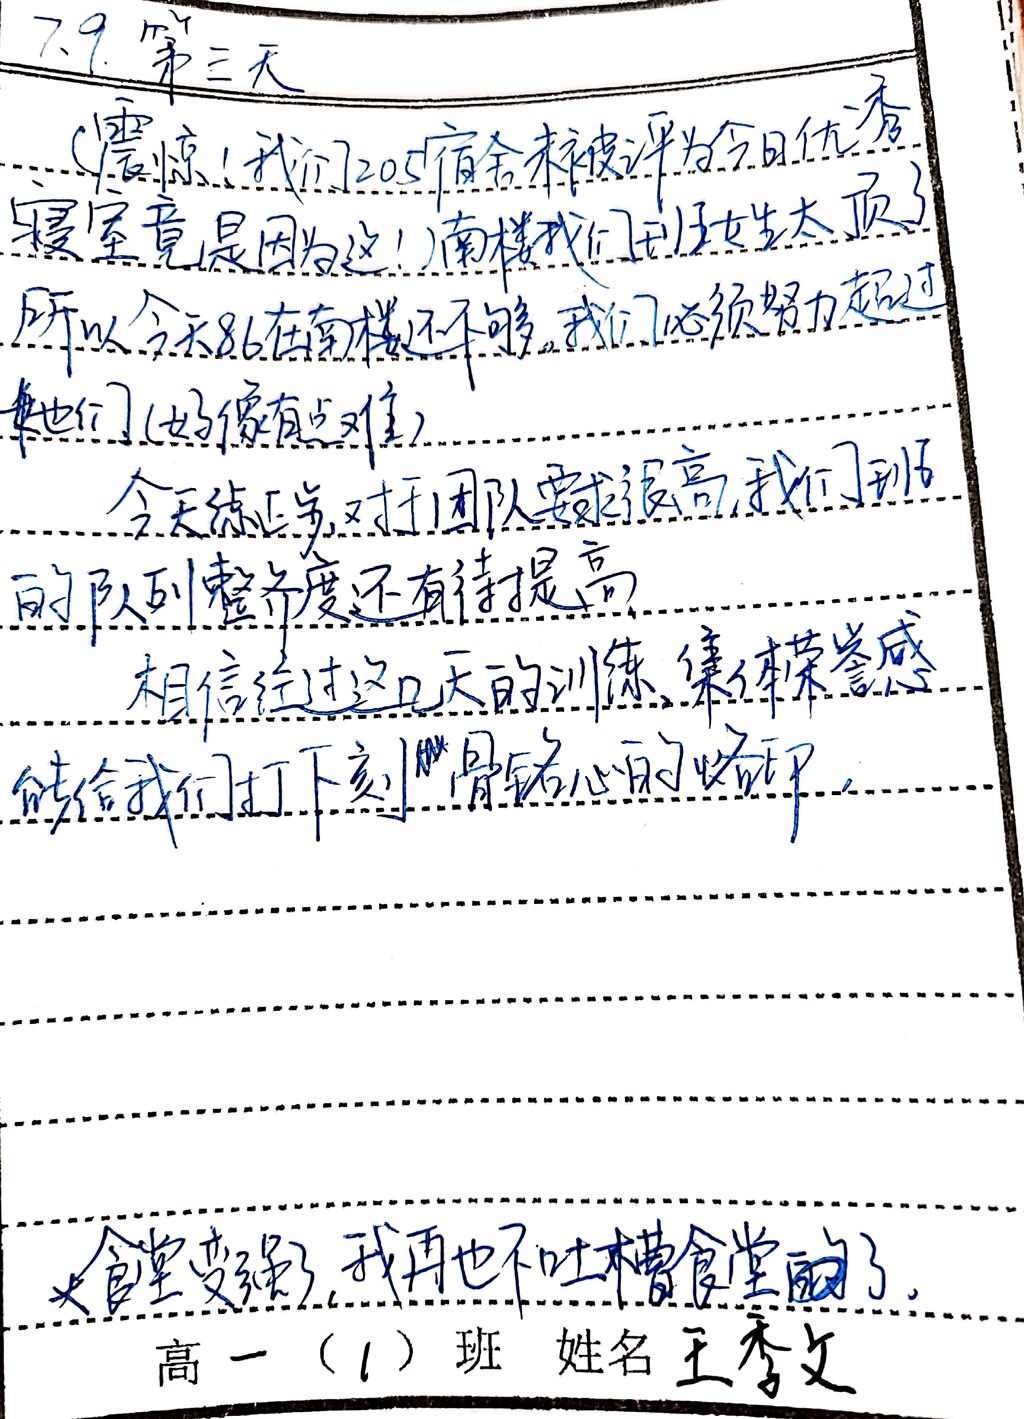 7.9. 第三天
（震惊！我们205宿舍未被评为今日优秀
寝室竟是因为这！）南楼我们班女生太顶了
所以今天86在南楼还不够。我们必须努力超过
她们（好像有点难）
今天练正步，对于团队要求很高，我们班
的队列整齐度还有待提高
相信经过这几天的训练，集体荣誉感
能给我们打下刻骨铭心的烙印．
食堂变强了，我再也不吐槽食堂了．
高一（1）班 姓名 王季文